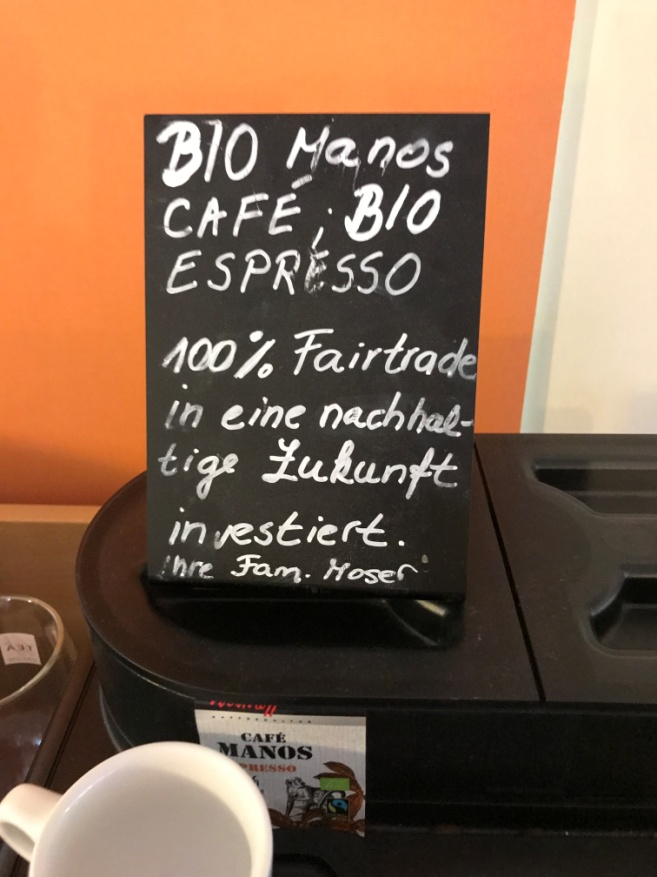 BIO Manos
CAFÉ, BIO
ESPRESSO
100% Fairtrade
in eine nachhal-
tige Zukunft
investiert.
Ihre Fam. Moser
CAFÉ
MANOS
PRESSO